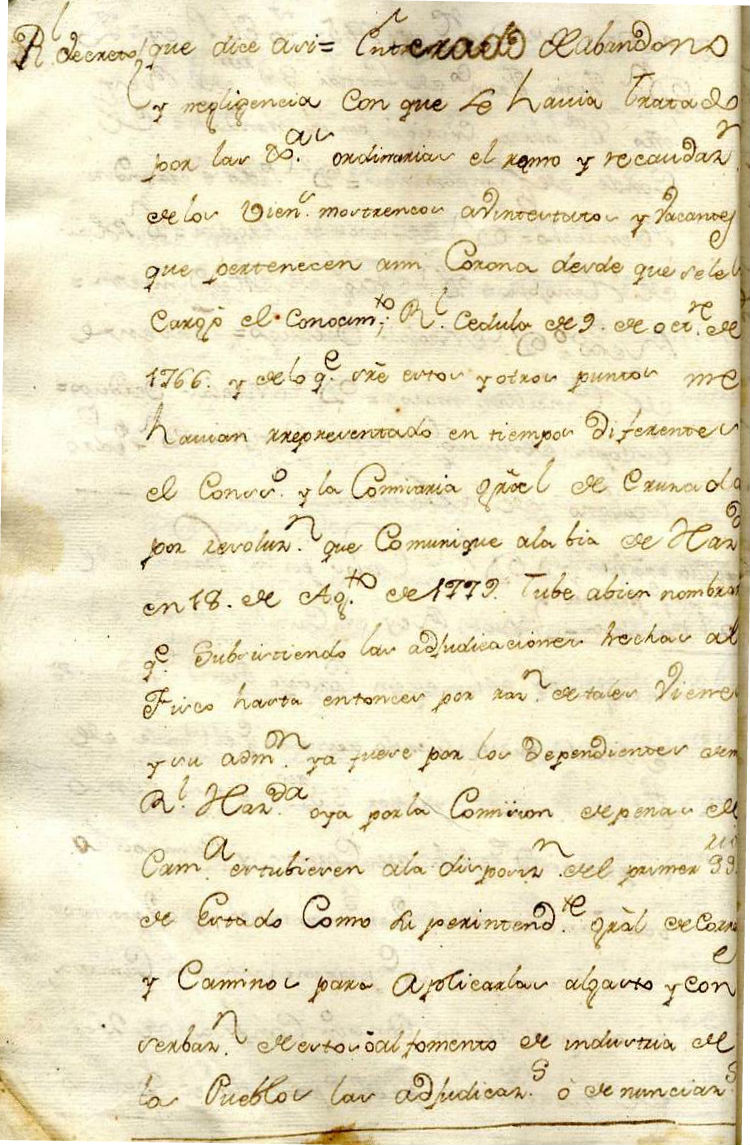 Rl. decreto / que dice asi = Enterado del abandono
y negligencia con que se havia tratado
por las Jas. ordinarias el ramo y recaudazn.
de los Viens. mostrencos advintestatos y Vacantes
que pertenecen ami Corona desde que seles
cargò el conocimto; Rl. Cedula de 9. de octre. de
1766. y de lo qe. sre estos y otros puntos me
havian rrepresentado en tiempos diferentes
el Conso. y la Comisaria gràl de Crusada
por resoluzn. que Comunique ala bia de Hazda
en 18. de Agto. de 1779. Tube abien nombrar
qe. Subsistiendo las adjudicaciones hechas al
Fisco hasta entonces por razn. de tales Vienes
y su admn. ya fuese por los Dependientes de mi
Rl. Hazda. oya por la Comision de penas de
Cama. estubiesen ala disposizn. del primer
de Estado Como Superintendte. gràl de Corrs
y Caminos para aplicarlas algasto y con
serbazn. de estos ò al fomento de industria de
los Pueblos las adjudicazs. ò denunciazs.